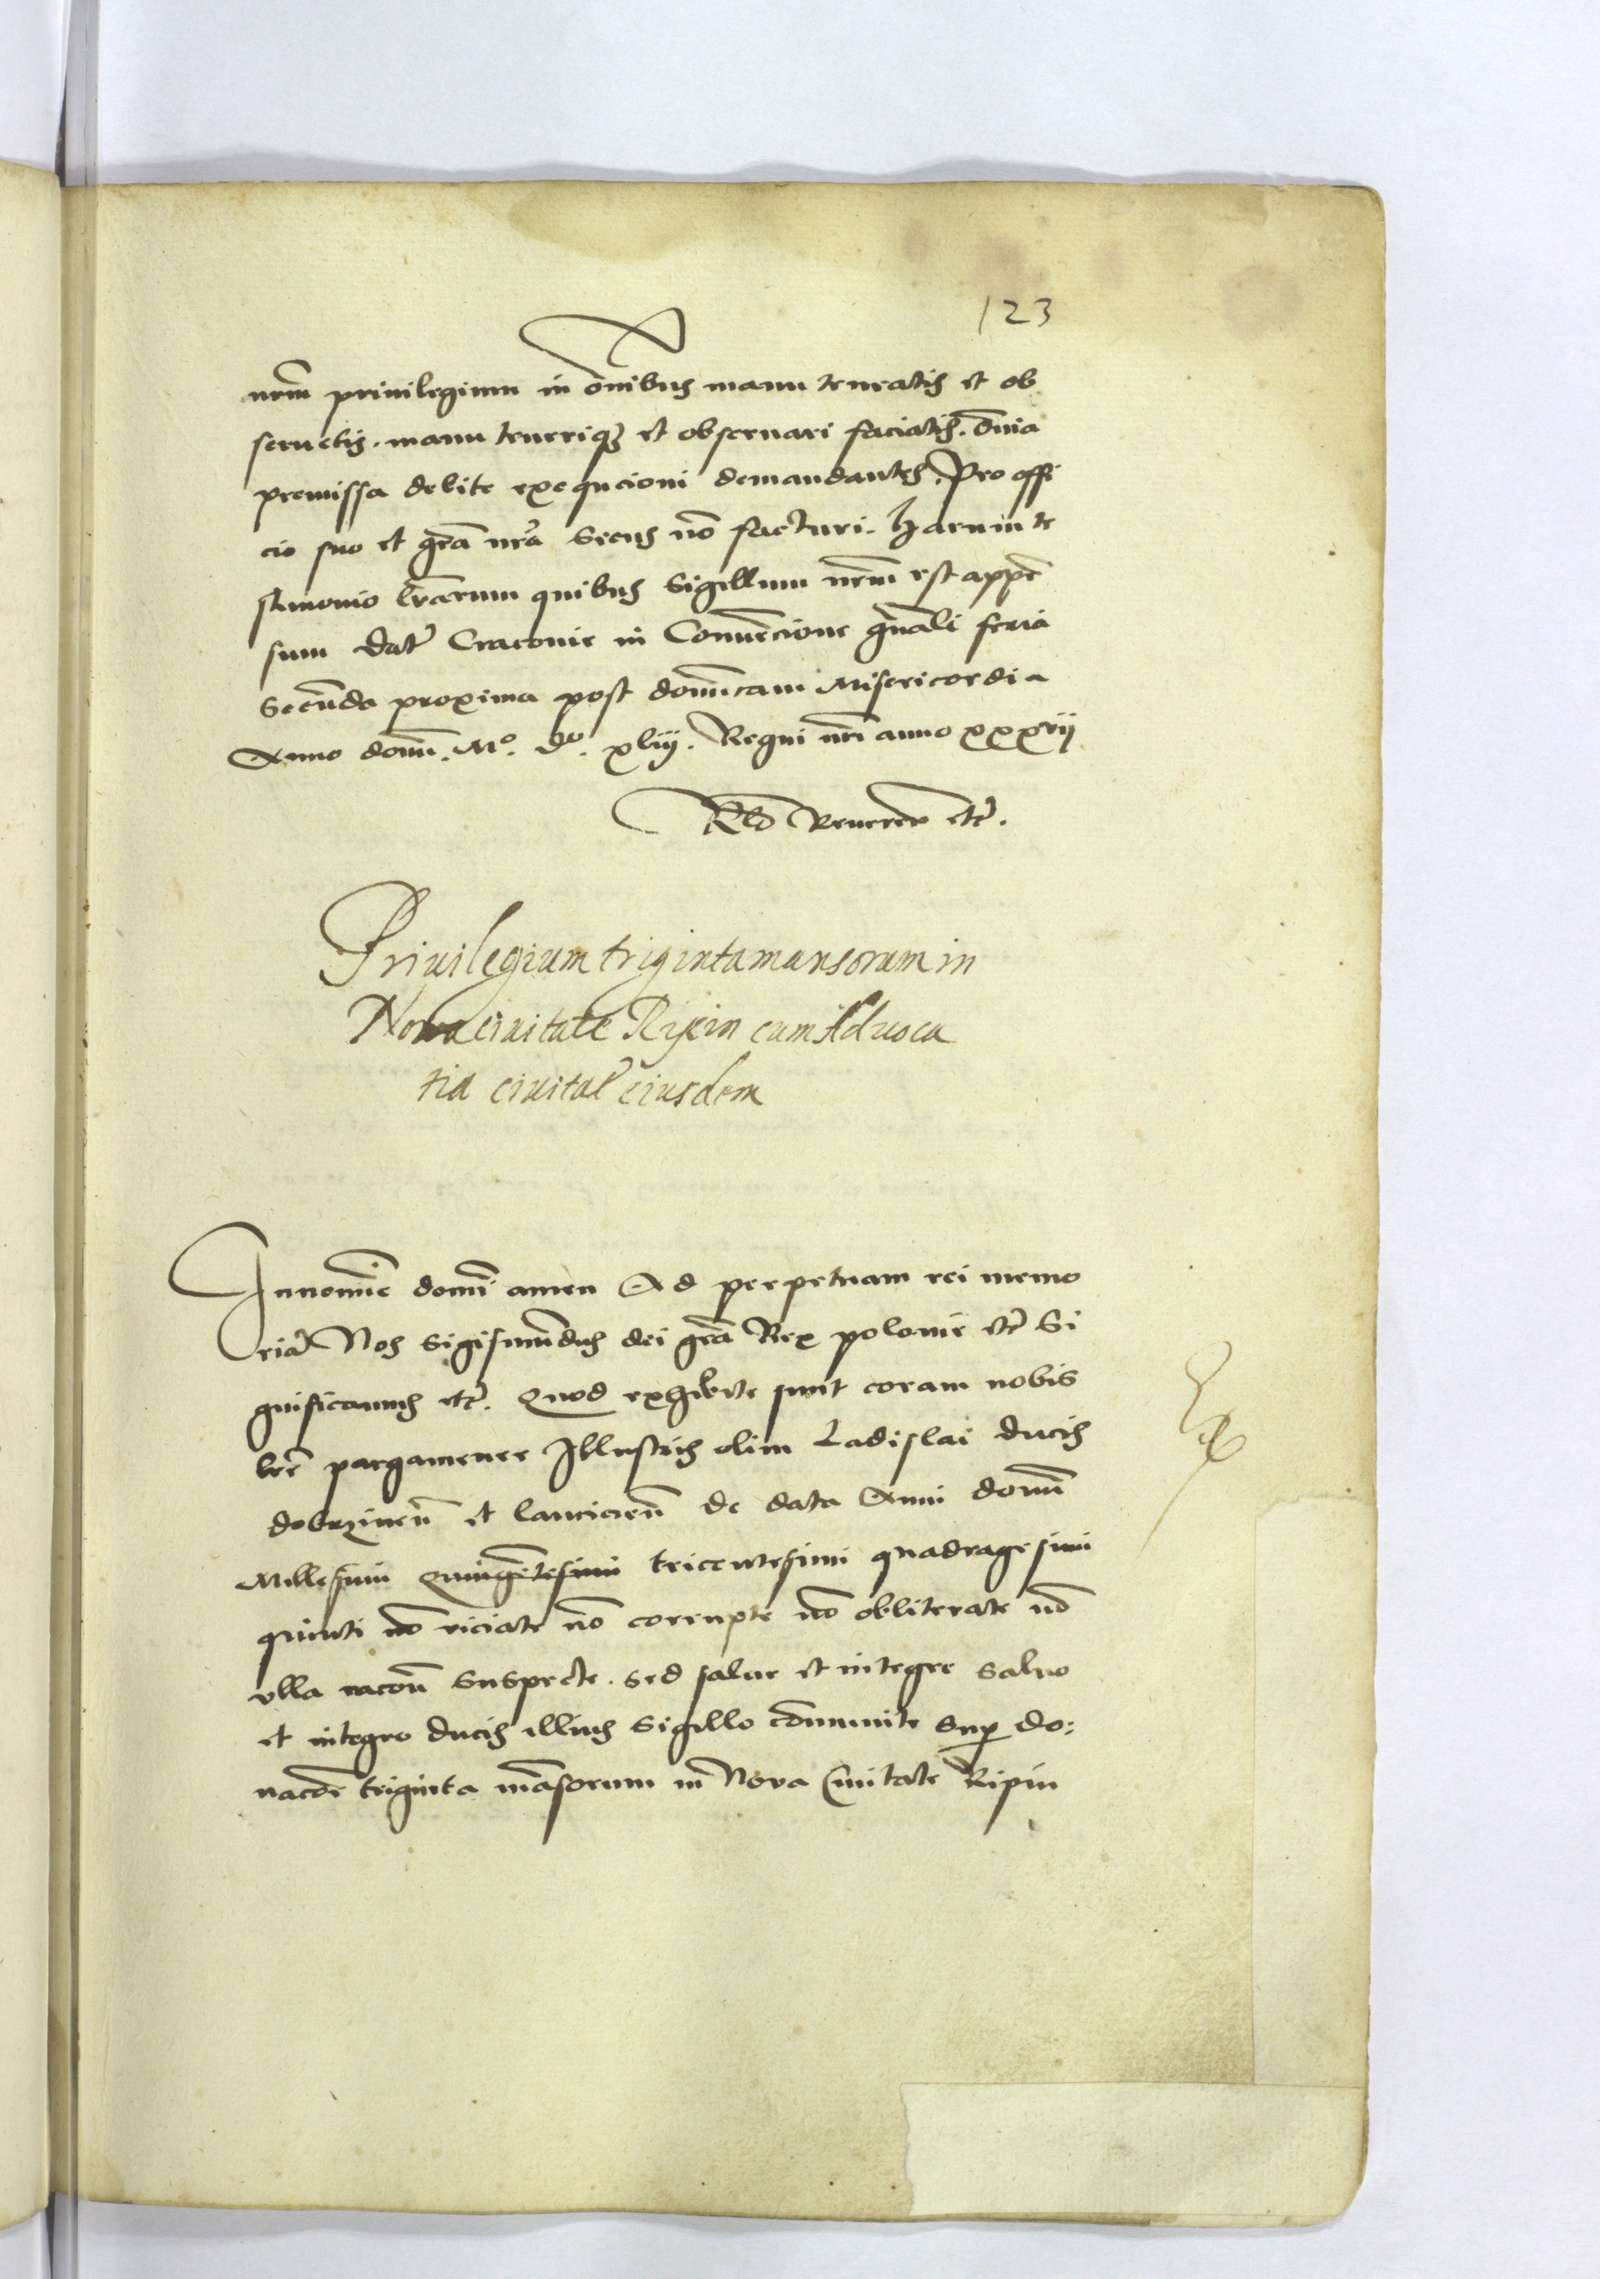 123
nrm̄ priuilegium in om̄ibus manu teneatis et ob
seruetis. manu tenerique et obseruari faciatis. Om̄ia
premissa debite exequcioni demandantes. Pro offi
cio suo et gr̄a nr̄a Secus nō facturi. Harum te
stimonio lr̄arum quibus Sigillum nrm̄ est appē
sum Dat̄ Cracouie in Conuēcione gn̄ali feria
Secūda proxima post domīcam Misericordia
Anno domī. Mo. do. xliij. Regni nrī anno xxxvij
Rlō Reueren̄ etc̄.
Priuilegium triginta mansorum in
Noua ciuitate Ripin cum Aduoca
tia ciuitat̄ eiusdem
In nomīe domī amen Ad perpetuam rei memo
riā Nos Sigismūdus dei gr̄a Rex polonie etc̄ Si
gnificamus etc̄. Quod exhibite sunt coram nobis
lrē pargamenee Illustris olim Ladislai ducis
dobrzineñ et lancicieñ de data Anni domī
Millesimi Quingētesimi tricentesimi quadragesimi
quinti nō viciate nō corrupte nō obliterate nō
vlla racōn̄ Suspecte. Sed salue et integre Saluo
et integro ducis illius Sigillo cōmunite Sup do:
nacōē triginta māsorum in Nova Ciuitate Ripin